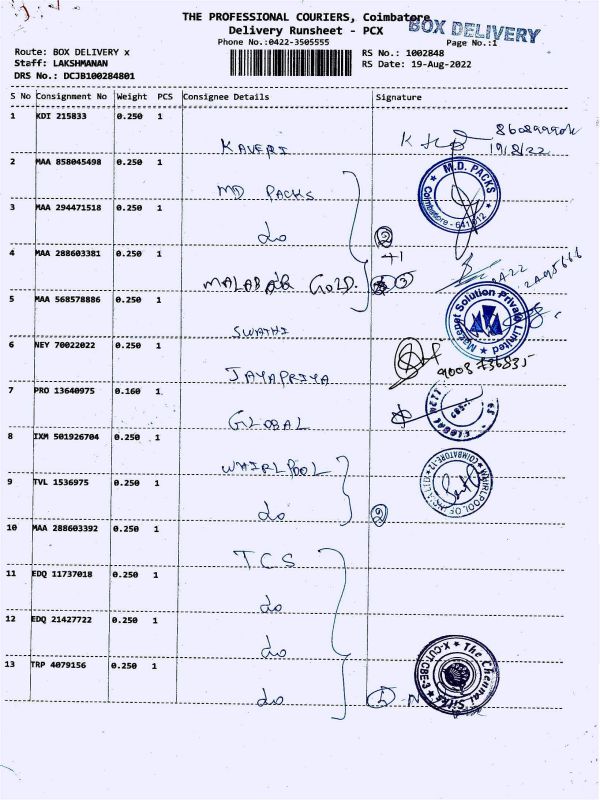 THE PROFESSIONAL COURIERS, Coimbatore
BOX DELIVERY
Delivery Runsheet - PCX
Phone No.:0422-3505555
Page No.:1
Route: BOX DELIVERY x
RS No.: 1002848
Staff: LAKSHMANAN
RS Date: 19-Aug-2022
DRS No.: DCJB100284801
S No Consignment No Weight PCS Consignee Details Signature
1 KDI 215833 0.250 1
KAVERI
19/8/22
2 MAA 858045498 0.250 1
MD PACKS
M.D. PACKS
Coimbatore - 641 012
3 MAA 294471518 0.250 1
do
2
+1
4 MAA 288603381 0.250 1
MALABAR GOLD.
3
5 MAA 568578886 0.250 1
SWATHI
Solution Private Limited
6 NEY 70022022 0.250 1
JAYAPRIYA
7 PRO 13640975 0.160 1
GLOBAL
GLOBAL
8 IXM 501926704 0.250 1
WHIRLPOOL
WHIRLPOOL OF
COIMBATORE-12
9 TVL 1536975 0.250 1
do
2
10 MAA 288603392 0.250 1
TCS
11 EDQ 11737018 0.250 1
do
12 EDQ 21427722 0.250 1
do
13 TRP 4079156 0.250 1
do
The Chennai Silks
X-CUT-CBE-3